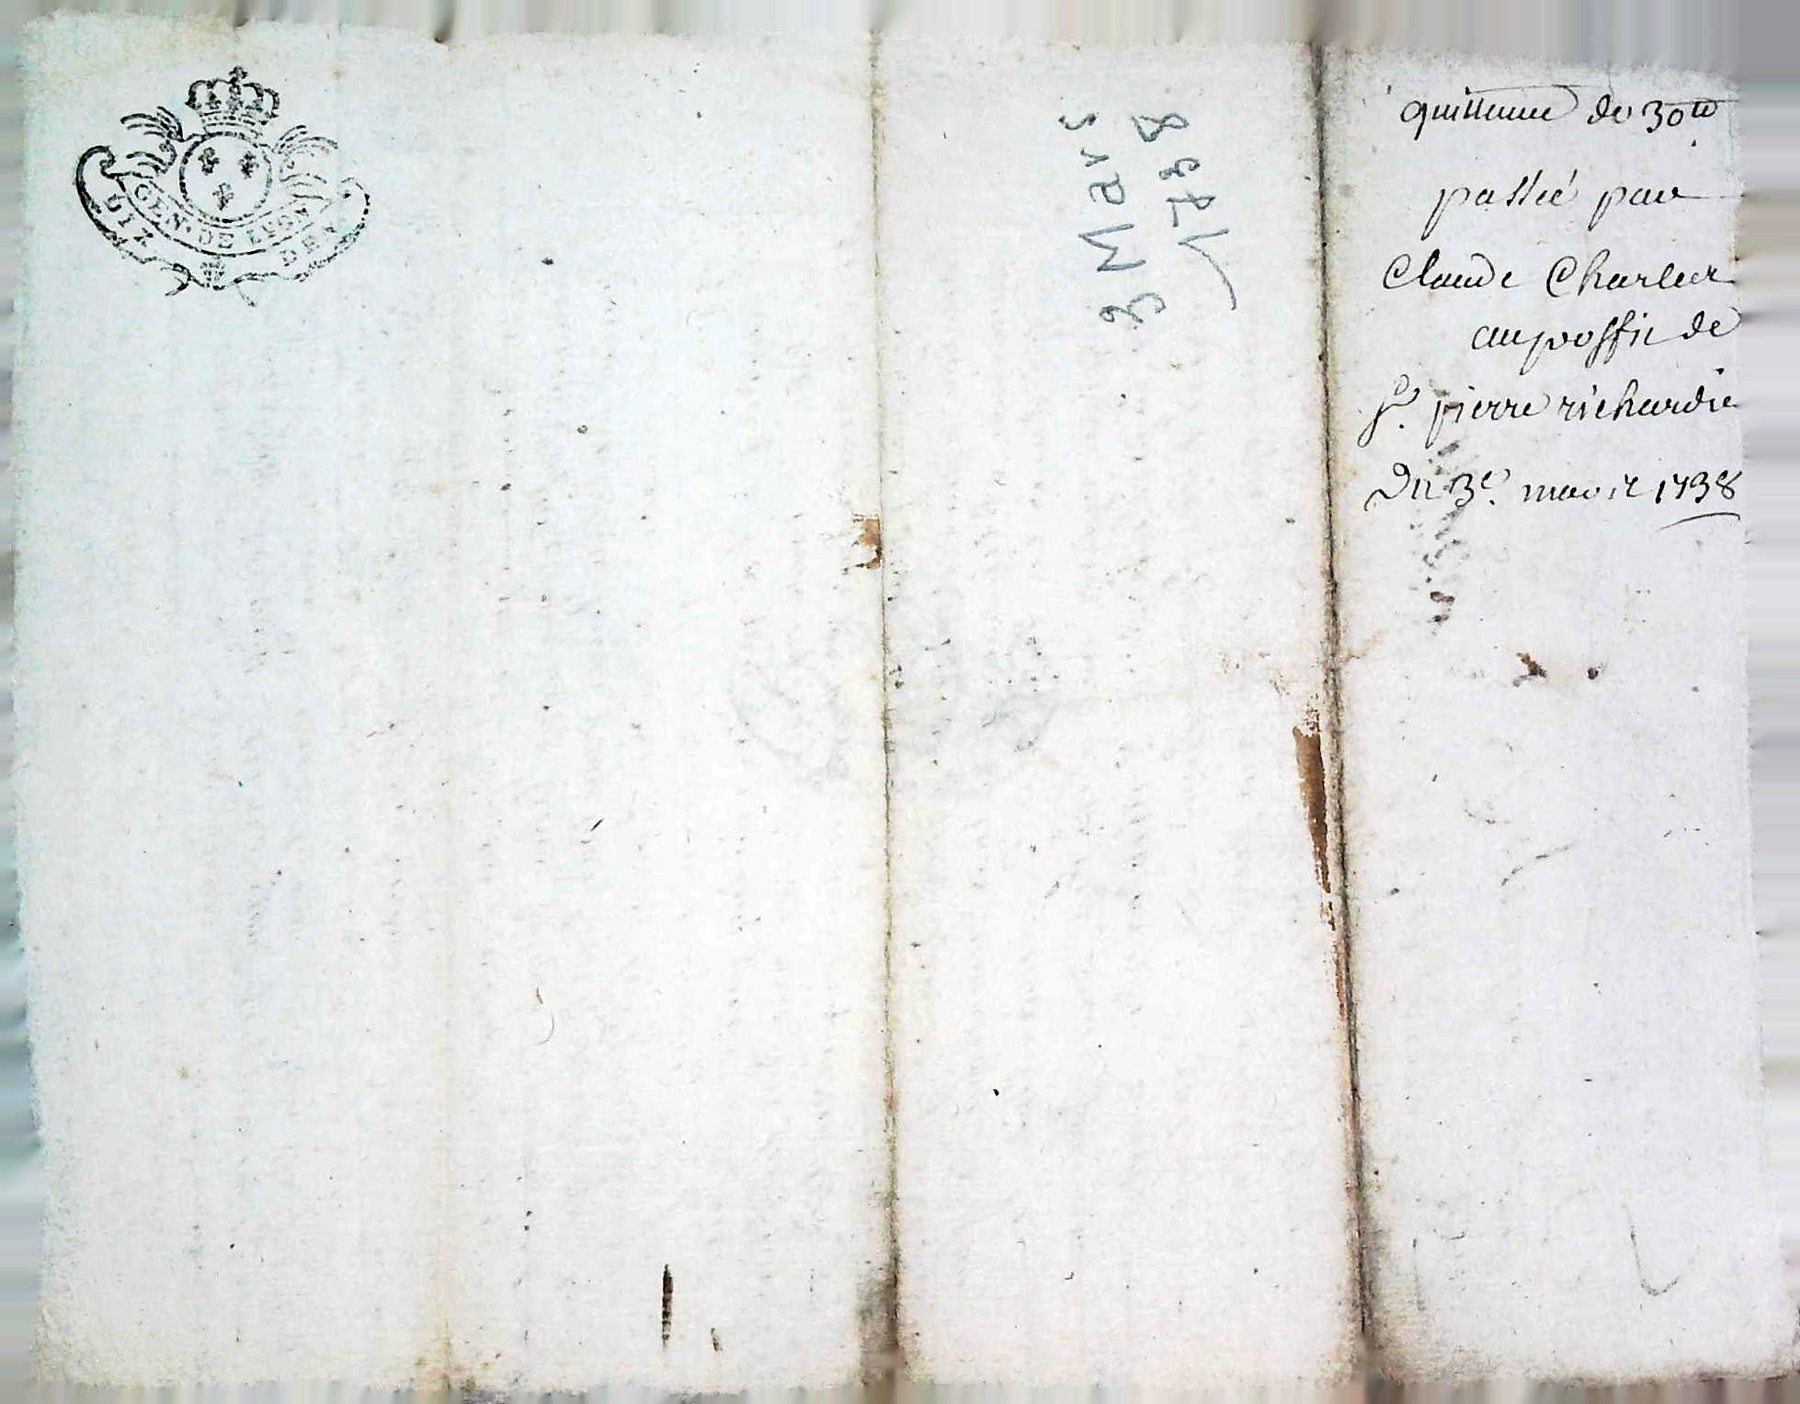 GEN. DE
DIX DEN
3 Mars
1738
quittance de 30tt
passée par
Claude Charler
au proffit de
Sr. pierre richardie
Du 3e. mars 1738